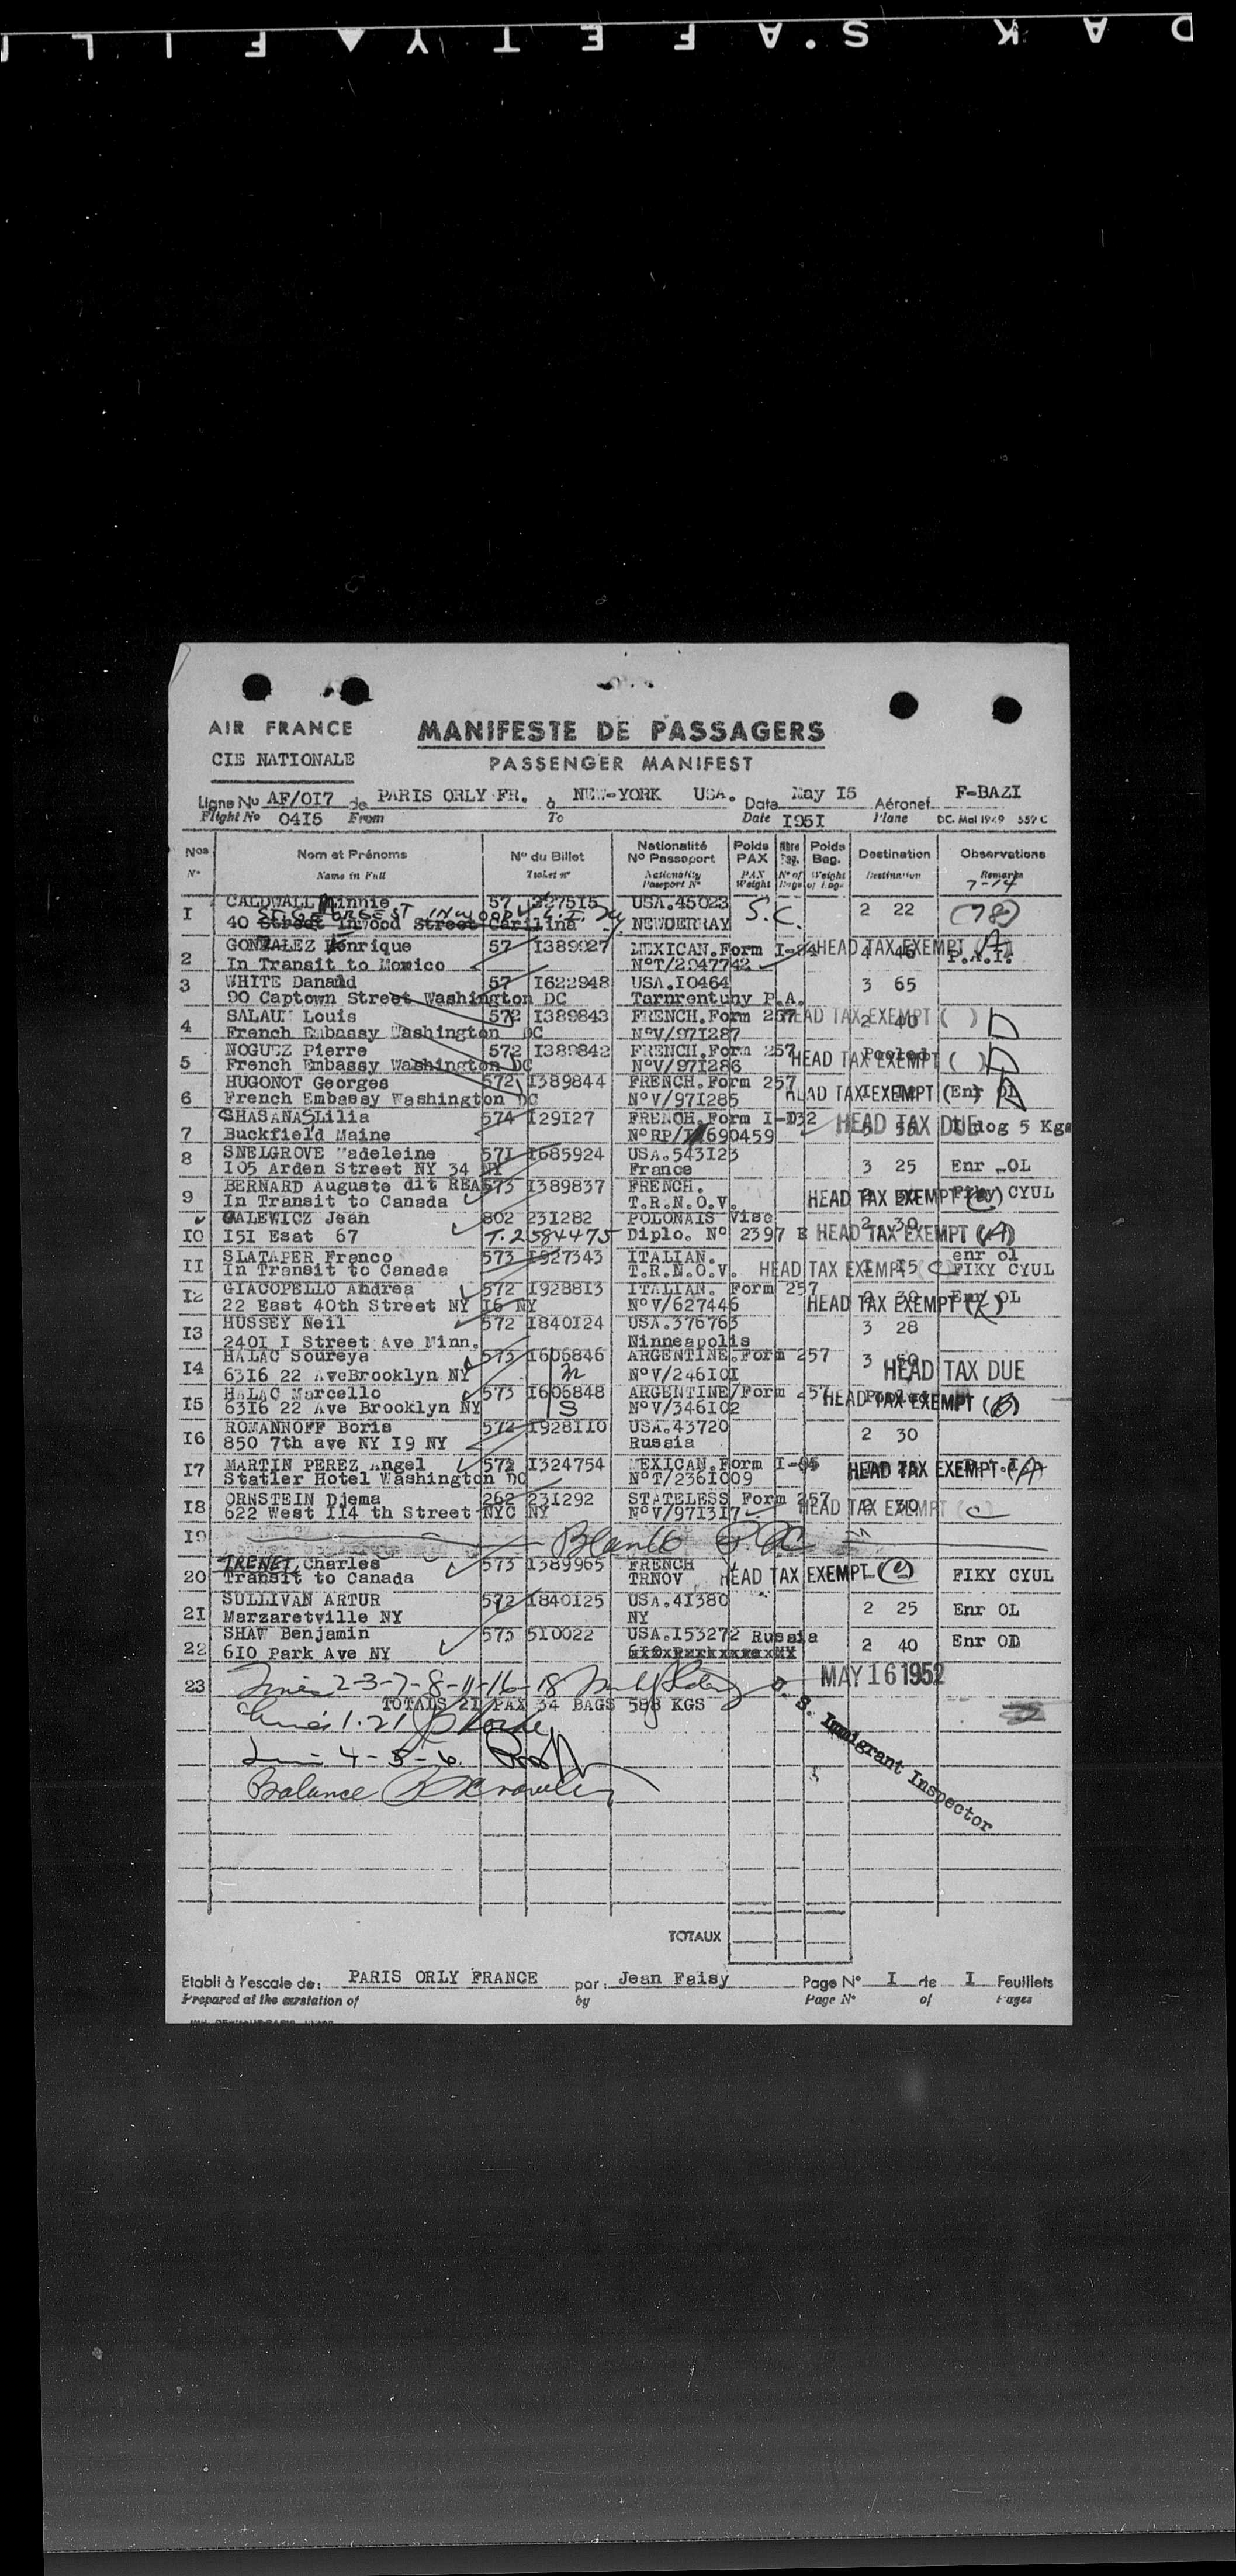 SAFETY FILM
AIR FRANCE
CIE NATIONALE
MANIFESTE DE PASSAGERS
PASSENGER MANIFEST
Ligne No AF/OI7 de PARIS ORLY FR. à NEW-YORK USA. Date May I5 Aéronef F-BAZI
Flight No 04I5 From To Date I95I Plane DC. Mai 1949 559 C
Nos Nom et Prénoms N° du Billet Nationalité N° Passeport Poids PAX Nbre Bag. Poids Bag. Destination Observations
N° Name in Full Ticket n° Nationality Passport N° PAX Weight N° of Bags Weight of Bags Destination Remarks
7-14
I CALDWALL Minnie 57 327515 USA.45023 S.C. 2 22 (78)
ST. GEORGE ST INWOOD, L.I. N.Y.
40 Street Inwood Street Carilina NEWDERRAY
2 GONZALEZ Henrique 57 I389027 MEXICAN.Form I-94 HEAD TAX EXEMPT (A) 4 40 P.A.I.
In Transit to Momico N°T/2947742
3 WHITE Danald 57 I622948 USA.I0464 3 65
90 Captown Street Washington DC Tarnrentuny P.A.
4 SALAUN Louis 572 I389843 FRENCH.Form 257 HEAD TAX EXEMPT ( ) D 2 40
French Embassy Washington DC N°V/97I287
5 NOGUEZ Pierre 572 I389842 FRENCH.Form 257 HEAD TAX EXEMPT ( ) D Pooled
French Embassy Washington DC N°V/97I286
6 HUGONOT Georges 572 I389844 FRENCH.Form 257 HEAD TAX EXEMPT Enr OL
French Embassy Washington DC N°V/97I285
7 CHASANAS Lilia 574 I29I27 FRENCH.Form I-D32 HEAD TAX DUE I dog 5 Kgs
Buckfield Maine N°RP/I690459
8 SNELGROVE Madeleine 57I I685924 USA.543I23 3 25 Enr OL
I05 Arden Street NY 34 NY France
9 BERNARD Auguste dit REA 573 I389837 FRENCH. HEAD TAX EXEMPT (C) Fiky CYUL
In Transit to Canada T.R.N.O.V.
I0 GALEWICZ Jean 802 23I282 POLONAIS Visc 2 30
I5I Esat 67 T.2584475 Diplo. N° 2397 E HEAD TAX EXEMPT (A)
II SLATAPER Franco 573 I927343 ITALIAN. enr ol
In Transit to Canada T.R.N.O.V. HEAD TAX EXEMPT C I I5 FIKY CYUL
I2 GIACOPELLO Andrea 572 I928813 ITALIAN. Form 257 2 30 Enr OL
22 East 40th Street NY I6 NY N°V/627446 HEAD TAX EXEMPT
I3 HUSSEY Neil 572 I840I24 USA.376763 3 28
240I I Street Ave Minn. Ninneapolis
I4 HALAC Soureya 573 I606846 ARGENTINE.Form 257 3 HEAD TAX DUE
63I6 22 AveBrooklyn NY M N°V/246I0I
I5 HALAC Marcello 573 I606848 ARGENTINE/Form 257 HEAD TAX EXEMPT (B) Pooled
63I6 22 Ave Brooklyn NY S N°V/346I02
I6 ROMANNOFF Boris 572 I928II0 USA.43720 2 30
850 7th ave NY I9 NY Russia
I7 MARTIN PEREZ Angel 572 I324754 MEXICAN.Form I-95 HEAD TAX EXEMPT (A)
Statler Hotel Washington DC N°T/236I009
I8 ORNSTEIN Djema 262 23I292 STATELESS Form 257 HEAD TAX EXEMPT C 2 30
622 West II4 th Street NYC NY N°V/97I3I7
I9 Blank
20 TRENET, Charles 573 I389965 FRENCH HEAD TAX EXEMPT (C) FIKY CYUL
Transit to Canada TRNOV
2I SULLIVAN ARTUR 572 I840I25 USA.4I380 2 25 Enr OL
Marzaretville NY NY
22 SHAW Benjamin 573 5I0022 USA.I53272 Russia 2 40 Enr OD
6I0 Park Ave NY
23 Lines 2-3-7-8-11-16-18 MAY 16 1952
TOTALS 2I PAX 34 BAGS 588 KGS
Lines 1-21
U. S. Immigrant Inspector
Lines 4-5-6.
Balance
TOTAUX
Etabli à l'escale de: PARIS ORLY FRANCE par: Jean Faisy Page N° I de I Feuillets
Prepared at the airstation of by Page N° of Pages